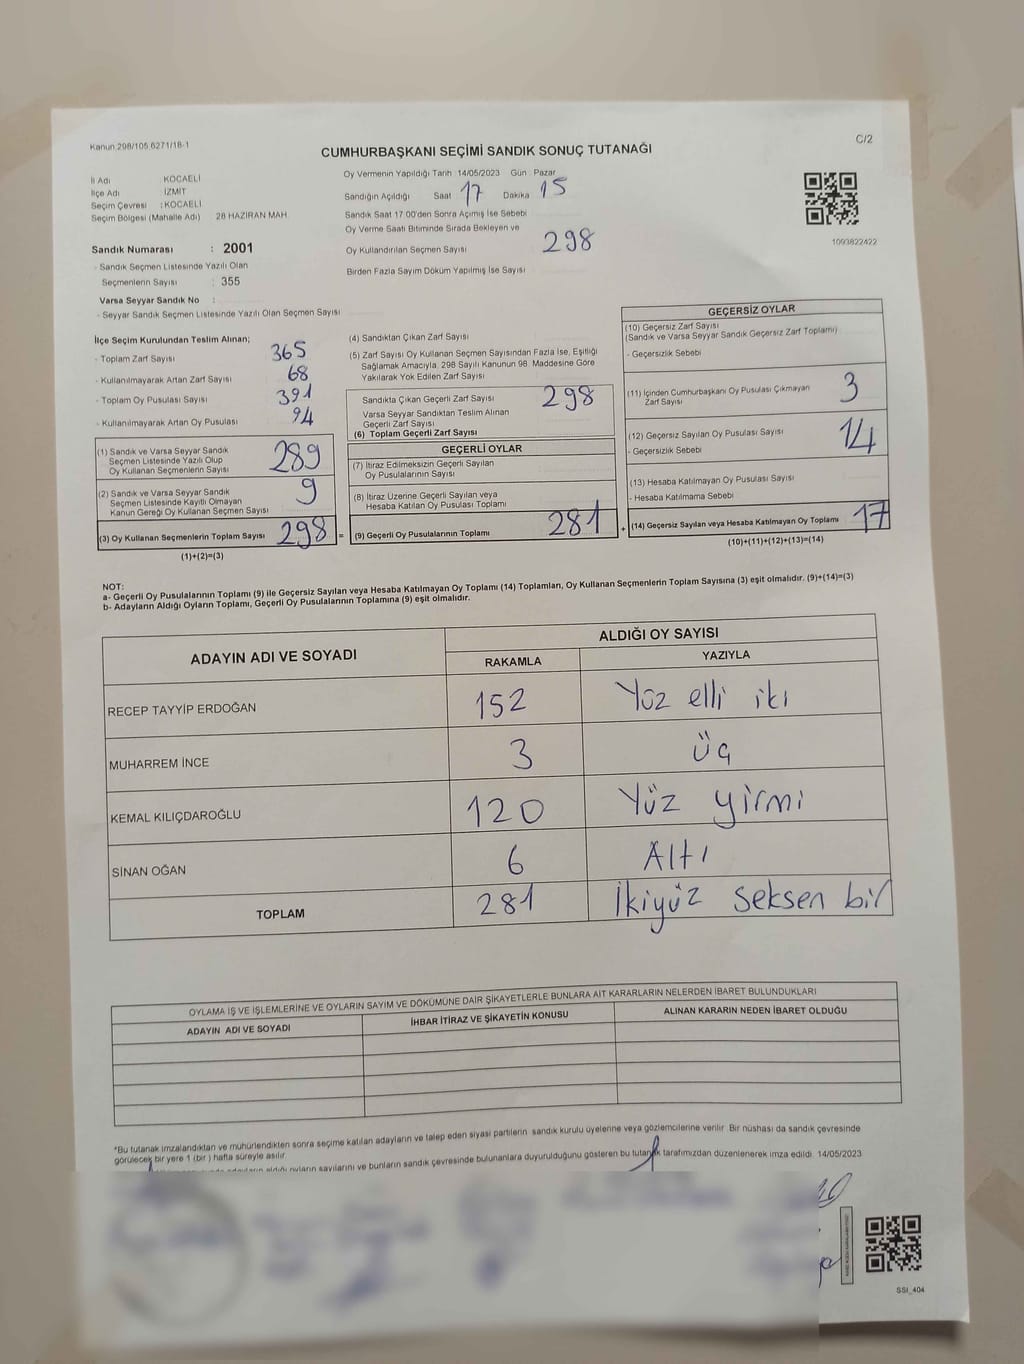 Kanun 298/105 6271/18-1
C/2
CUMHURBAŞKANI SEÇİMİ SANDIK SONUÇ TUTANAĞI
İl Adı : KOCAELİ
İlçe Adı : İZMİT
Seçim Çevresi : KOCAELİ
Seçim Bölgesi (Mahalle Adı) 28 HAZIRAN MAH.
Oy Vermenin Yapıldığı Tarih 14/05/2023 Gün : Pazar
Sandığın Açıldığı Saat 17 Dakika 15
Sandık Saat 17 00'den Sonra Açılmış İse Sebebi
Oy Verme Saati Bitiminde Sırada Bekleyen ve
Oy Kullandırılan Seçmen Sayısı 298
Birden Fazla Sayım Döküm Yapılmış İse Sayısı
1093822422
Sandık Numarası : 2001
- Sandık Seçmen Listesinde Yazılı Olan
Seçmenlerin Sayısı : 355
Varsa Seyyar Sandık No :
- Seyyar Sandık Seçmen Listesinde Yazılı Olan Seçmen Sayısı
İlçe Seçim Kurulundan Teslim Alınan;
- Toplam Zarf Sayısı 365
- Kullanılmayarak Artan Zarf Sayısı 68
- Toplam Oy Pusulası Sayısı 391
- Kullanılmayarak Artan Oy Pusulası 94
(1) Sandık ve Varsa Seyyar Sandık
Seçmen Listesinde Yazılı Olup
Oy Kullanan Seçmenlerin Sayısı 289
(2) Sandık ve Varsa Seyyar Sandık
Seçmen Listesinde Kayıtlı Olmayan
Kanun Gereği Oy Kullanan Seçmen Sayısı 9
(3) Oy Kullanan Seçmenlerin Toplam Sayısı 298 =
(1)+(2)=(3)
(4) Sandıktan Çıkan Zarf Sayısı
(5) Zarf Sayısı Oy Kullanan Seçmen Sayısından Fazla İse, Eşitliği
Sağlamak Amacıyla, 298 Sayılı Kanunun 98. Maddesine Göre
Yakılarak Yok Edilen Zarf Sayısı
Sandıkta Çıkan Geçerli Zarf Sayısı 298
Varsa Seyyar Sandıktan Teslim Alınan
Geçerli Zarf Sayısı
(6) Toplam Geçerli Zarf Sayısı
GEÇERLİ OYLAR
(7) İtiraz Edilmeksizin Geçerli Sayılan
Oy Pusulalarının Sayısı
(8) İtiraz Üzerine Geçerli Sayılan veya
Hesaba Katılan Oy Pusulası Toplamı
(9) Geçerli Oy Pusulalarının Toplamı 281 +
GEÇERSİZ OYLAR
(10) Geçersiz Zarf Sayısı
(Sandık ve Varsa Seyyar Sandık Geçersiz Zarf Toplamı)
- Geçersizlik Sebebi
(11) İçinden Cumhurbaşkanı Oy Pusulası Çıkmayan
Zarf Sayısı 3
(12) Geçersiz Sayılan Oy Pusulası Sayısı 14
- Geçersizlik Sebebi
(13) Hesaba Katılmayan Oy Pusulası Sayısı
- Hesaba Katılmama Sebebi
(14) Geçersiz Sayılan veya Hesaba Katılmayan Oy Toplamı 17
(10)+(11)+(12)+(13)=(14)
NOT:
a- Geçerli Oy Pusulalarının Toplamı (9) ile Geçersiz Sayılan veya Hesaba Katılmayan Oy Toplamı (14) Toplamları, Oy Kullanan Seçmenlerin Toplam Sayısına (3) eşit olmalıdır. (9)+(14)=(3)
b- Adayların Aldığı Oyların Toplamı, Geçerli Oy Pusulalarının Toplamına (9) eşit olmalıdır.
ADAYIN ADI VE SOYADI
ALDIĞI OY SAYISI
RAKAMLA YAZIYLA
RECEP TAYYİP ERDOĞAN 152 Yüz elli iki
MUHARREM İNCE 3 Üç
KEMAL KILIÇDAROĞLU 120 Yüz yirmi
SİNAN OĞAN 6 Altı
TOPLAM 281 İkiyüz seksen bir
OYLAMA İŞ VE İŞLEMLERİNE VE OYLARIN SAYIM VE DÖKÜMÜNE DAİR ŞİKAYETLERLE BUNLARA AİT KARARLARIN NELERDEN İBARET BULUNDUKLARI
ADAYIN ADI VE SOYADI İHBAR İTİRAZ VE ŞİKAYETİN KONUSU ALINAN KARARIN NEDEN İBARET OLDUĞU
*Bu tutanak imzalandıktan ve mühürlendikten sonra seçime katılan adayların ve talep eden siyasi partilerin sandık kurulu üyelerine veya gözlemcilerine verilir. Bir nüshası da sandık çevresinde
görülecek bir yere 1 (bir) hafta süreyle asılır.
aldığı oyların sayılarını ve bunların sandık çevresinde bulunanlara duyurulduğunu gösteren bu tutanak tarafımızdan düzenlenerek imza edildi. 14/05/2023
SSI_404